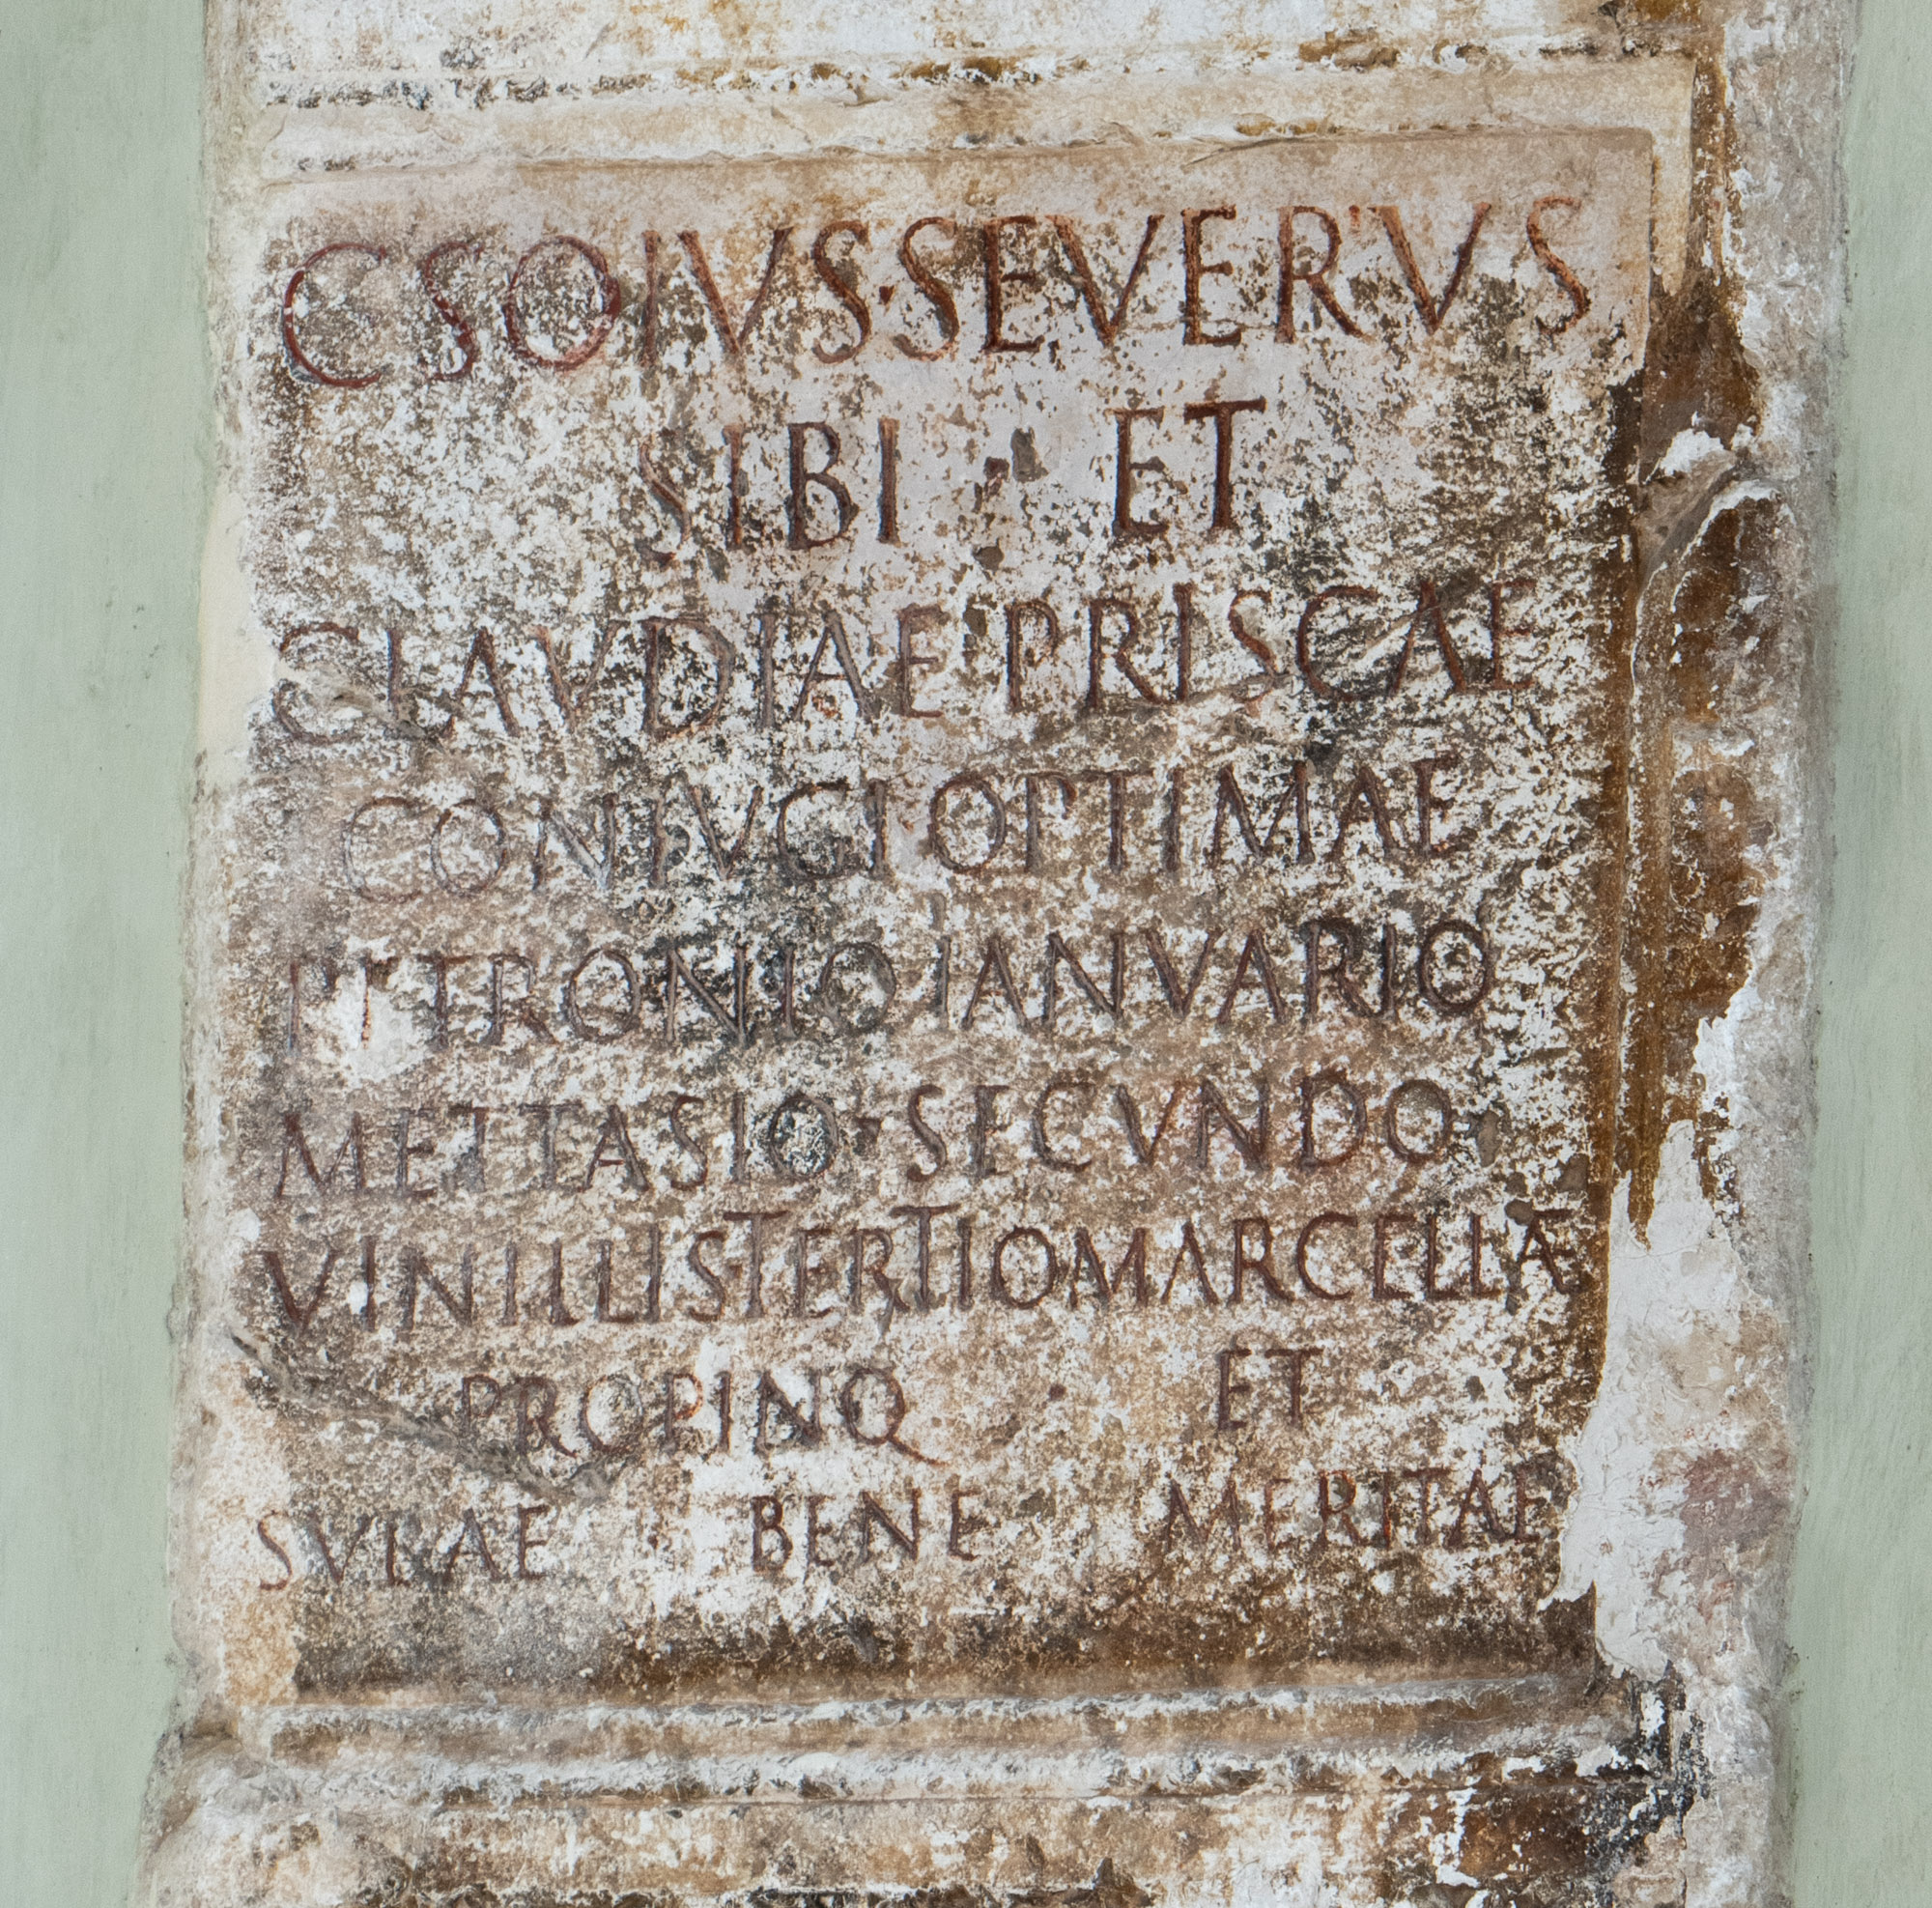 C SOIVS·SEVERVS
SIBI · ET
CLAVDIAE PRISCAE
CONIVGI OPTIMAE
PETRONIO IANVARIO
METTASIO·SECVNDO
TERTIO MARCELLAE
PROPINQ · ET
BENE MERITAE